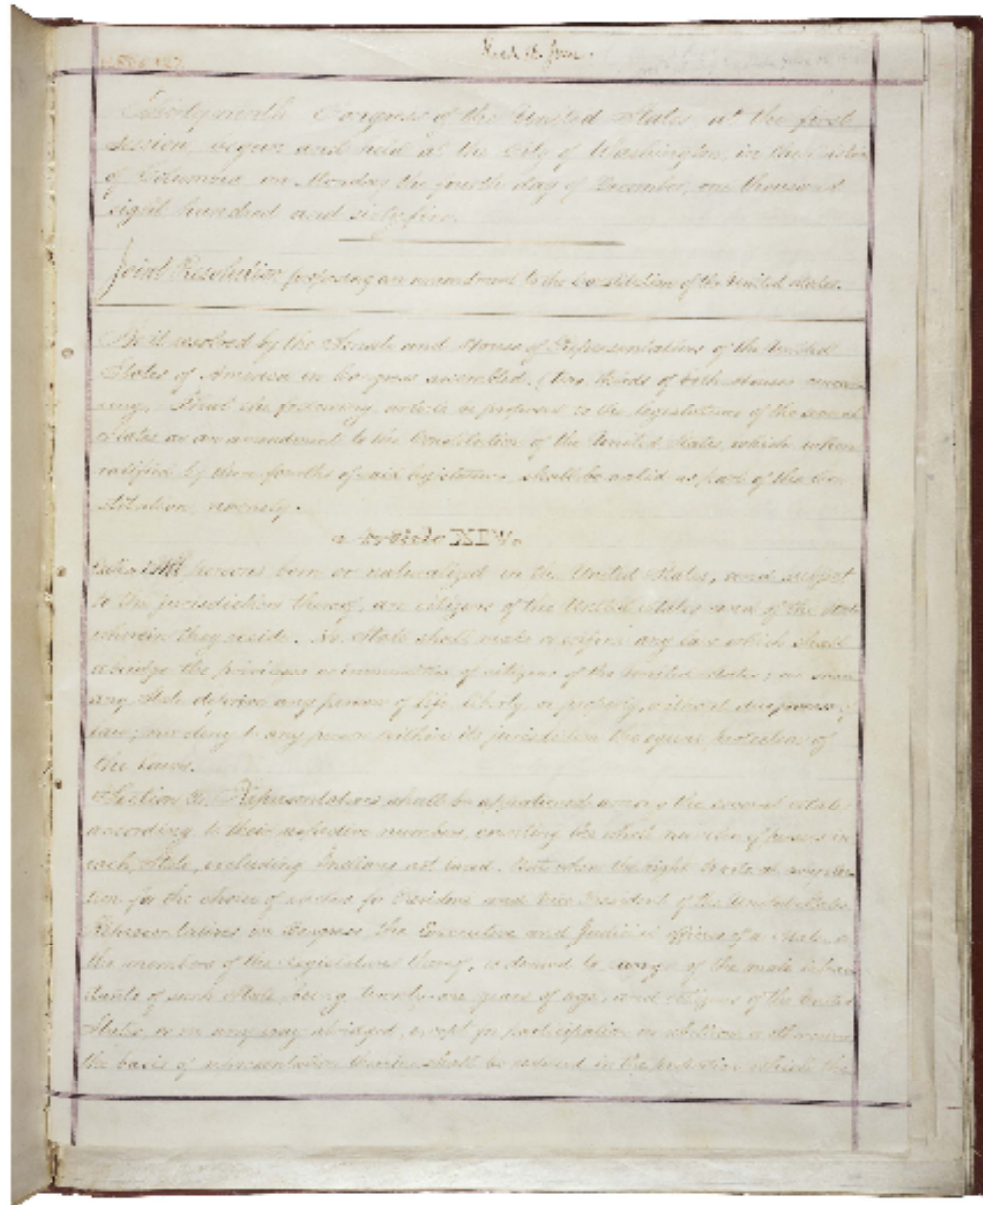 Thirty-ninth Congress of the United States, at the first
session, begun and held at the City of Washington, in the District
of Columbia on Monday the fourth day of December, one thousand
eight hundred and sixty-five.
Joint Resolution proposing an amendment to the Constitution of the United States.
Be it resolved by the Senate and House of Representatives of the United
States of America in Congress assembled, (two thirds of both Houses concur-
ring, That the following article be proposed to the legislatures of the several
States as an amendment to the Constitution of the United States, which when
ratified by three fourths of said legislatures, shall be valid as part of the Con-
stitution, namely.
Article XIV.
Section 1. All persons born or naturalized in the United States, and subject
to the jurisdiction thereof, are citizens of the United States and of the State
wherein they reside. No State shall make or enforce any law which shall
abridge the privileges or immunities of citizens of the United States; nor shall
any State deprive any person of life, liberty, or property, without due process of
law; nor deny to any person within its jurisdiction the equal protection of
the laws.
Section 2. Representatives shall be apportioned among the several States
according to their respective numbers, counting the whole number of persons in
each State, excluding Indians not taxed. But when the right to vote at any elec-
tion for the choice of electors for President and Vice President of the United States,
Representatives in Congress, the Executive and Judicial officers of a State, or
the members of the Legislature thereof, is denied to any of the male inhabi-
tants of such State, being twenty-one years of age, and citizens of the United
States, or in any way abridged, except for participation in rebellion or other crime,
the basis of representation therein shall be reduced in the proportion which the